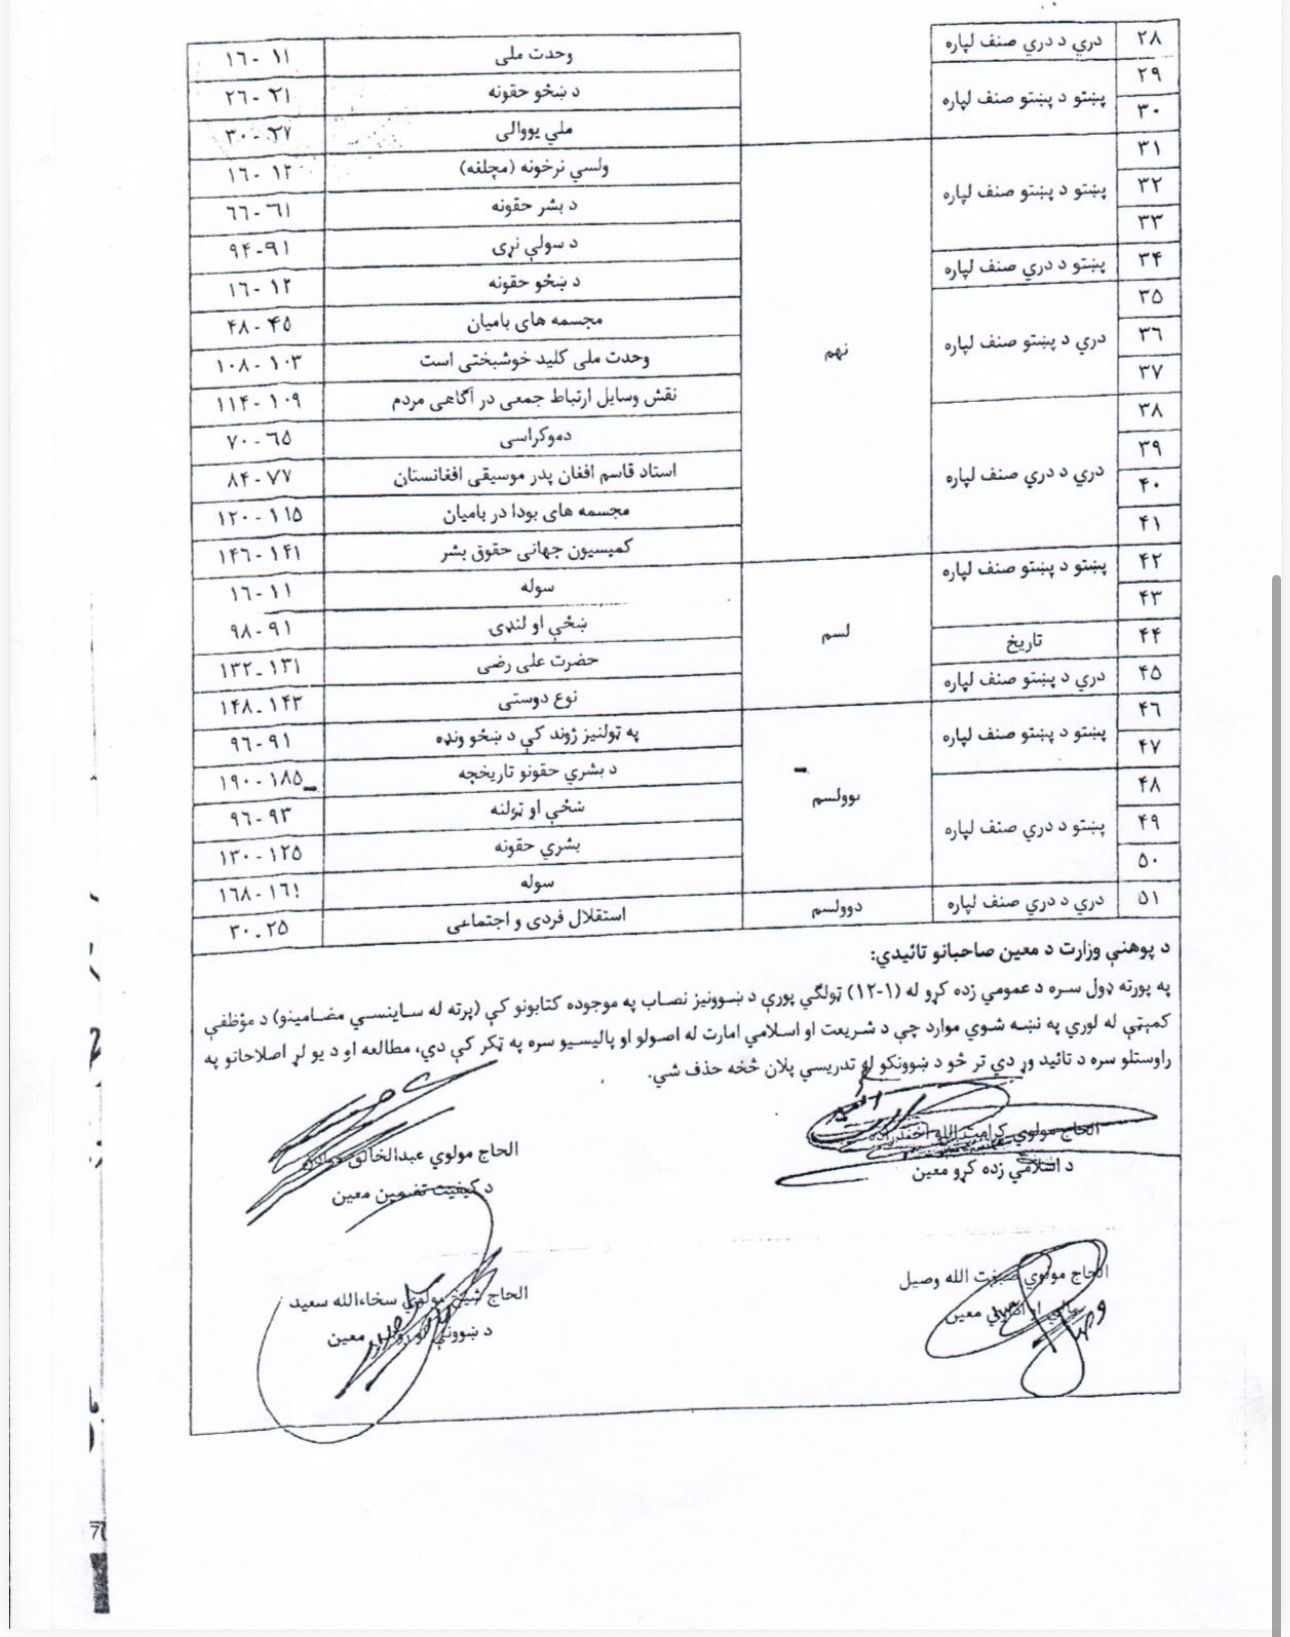 ۲۸ دري د دري صنف لپاره وحدت ملی ۱۱ - ۱۶
۲۹ پښتو د پښتو صنف لپاره د ښځو حقونه ۲۱ - ۲۶
۳۰ ملي یووالی ۲۷ - ۳۰
۳۱ پښتو د پښتو صنف لپاره نهم ولسي نرخونه (مچلغه) ۱۲ - ۱۶
۳۲ د بشر حقونه ۶۱ - ۶۶
۳۳ د سولې نړۍ ۹۱ - ۹۴
۳۴ پښتو د دري صنف لپاره د ښځو حقونه ۱۲ - ۱۶
۳۵ دري د پښتو صنف لپاره مجسمه های بامیان ۴۵ - ۴۸
۳۶ وحدت ملی کلید خوشبختی است ۱۰۳ - ۱۰۸
۳۷ نقش وسایل ارتباط جمعی در آگاهی مردم ۱۰۹ - ۱۱۴
۳۸ دري د دري صنف لپاره دموکراسی ۶۵ - ۷۰
۳۹ استاد قاسم افغان پدر موسیقی افغانستان ۷۷ - ۸۴
۴۰ مجسمه های بودا در بامیان ۱۱۵ - ۱۲۰
۴۱ کمیسیون جهانی حقوق بشر ۱۴۱ - ۱۴۶
۴۲ پښتو د پښتو صنف لپاره لسم سوله ۱۱ - ۱۶
۴۳ ښځې او لنډۍ ۹۱ - ۹۸
۴۴ تاریخ حضرت علی رضی ۱۳۱ - ۱۳۲
۴۵ دري د پښتو صنف لپاره نوع دوستی ۱۴۳ - ۱۴۸
۴۶ پښتو د پښتو صنف لپاره یوولسم په ټولنیز ژوند کې د ښځو ونډه ۹۱ - ۹۶
۴۷ د بشري حقونو تاریخچه ۱۸۵ - ۱۹۰
۴۸ پښتو د دري صنف لپاره ښځې او ټولنه ۹۳ - ۹۶
۴۹ بشري حقونه ۱۲۵ - ۱۳۰
۵۰ سوله ۱۶۱ - ۱۶۸
۵۱ دري د دري صنف لپاره دوولسم استقلال فردی و اجتماعی ۲۵ - ۳۰
د پوهنې وزارت د معین صاحبانو تائیدي:
په پورته ډول سره د عمومي زده کړو له (۱-۱۲) ټولګي پورې د ښوونیز نصاب په موجوده کتابونو کې (پرته له ساینسي مضامینو) د مؤظفې
کمېټې له لوري په نښه شوي موارد چې د شریعت او اسلامي امارت له اصولو او پالیسیو سره په ټکر کې دي، مطالعه او د یو لړ اصلاحاتو په
راوستلو سره د تائید وړ دي تر څو د ښوونکو له تدریسي پلان څخه حذف شي.
الحاج مولوي کرامت الله اخندزاده
د اسلامي زده کړو معین
الحاج مولوي عبدالخالق
د کیفیت تضمین معین
الحاج مولوي صبغت الله وصیل
مالي او اداري معین
الحاج شیخ مولوي سخاءالله سعید
د ښوونې او روزنې معین